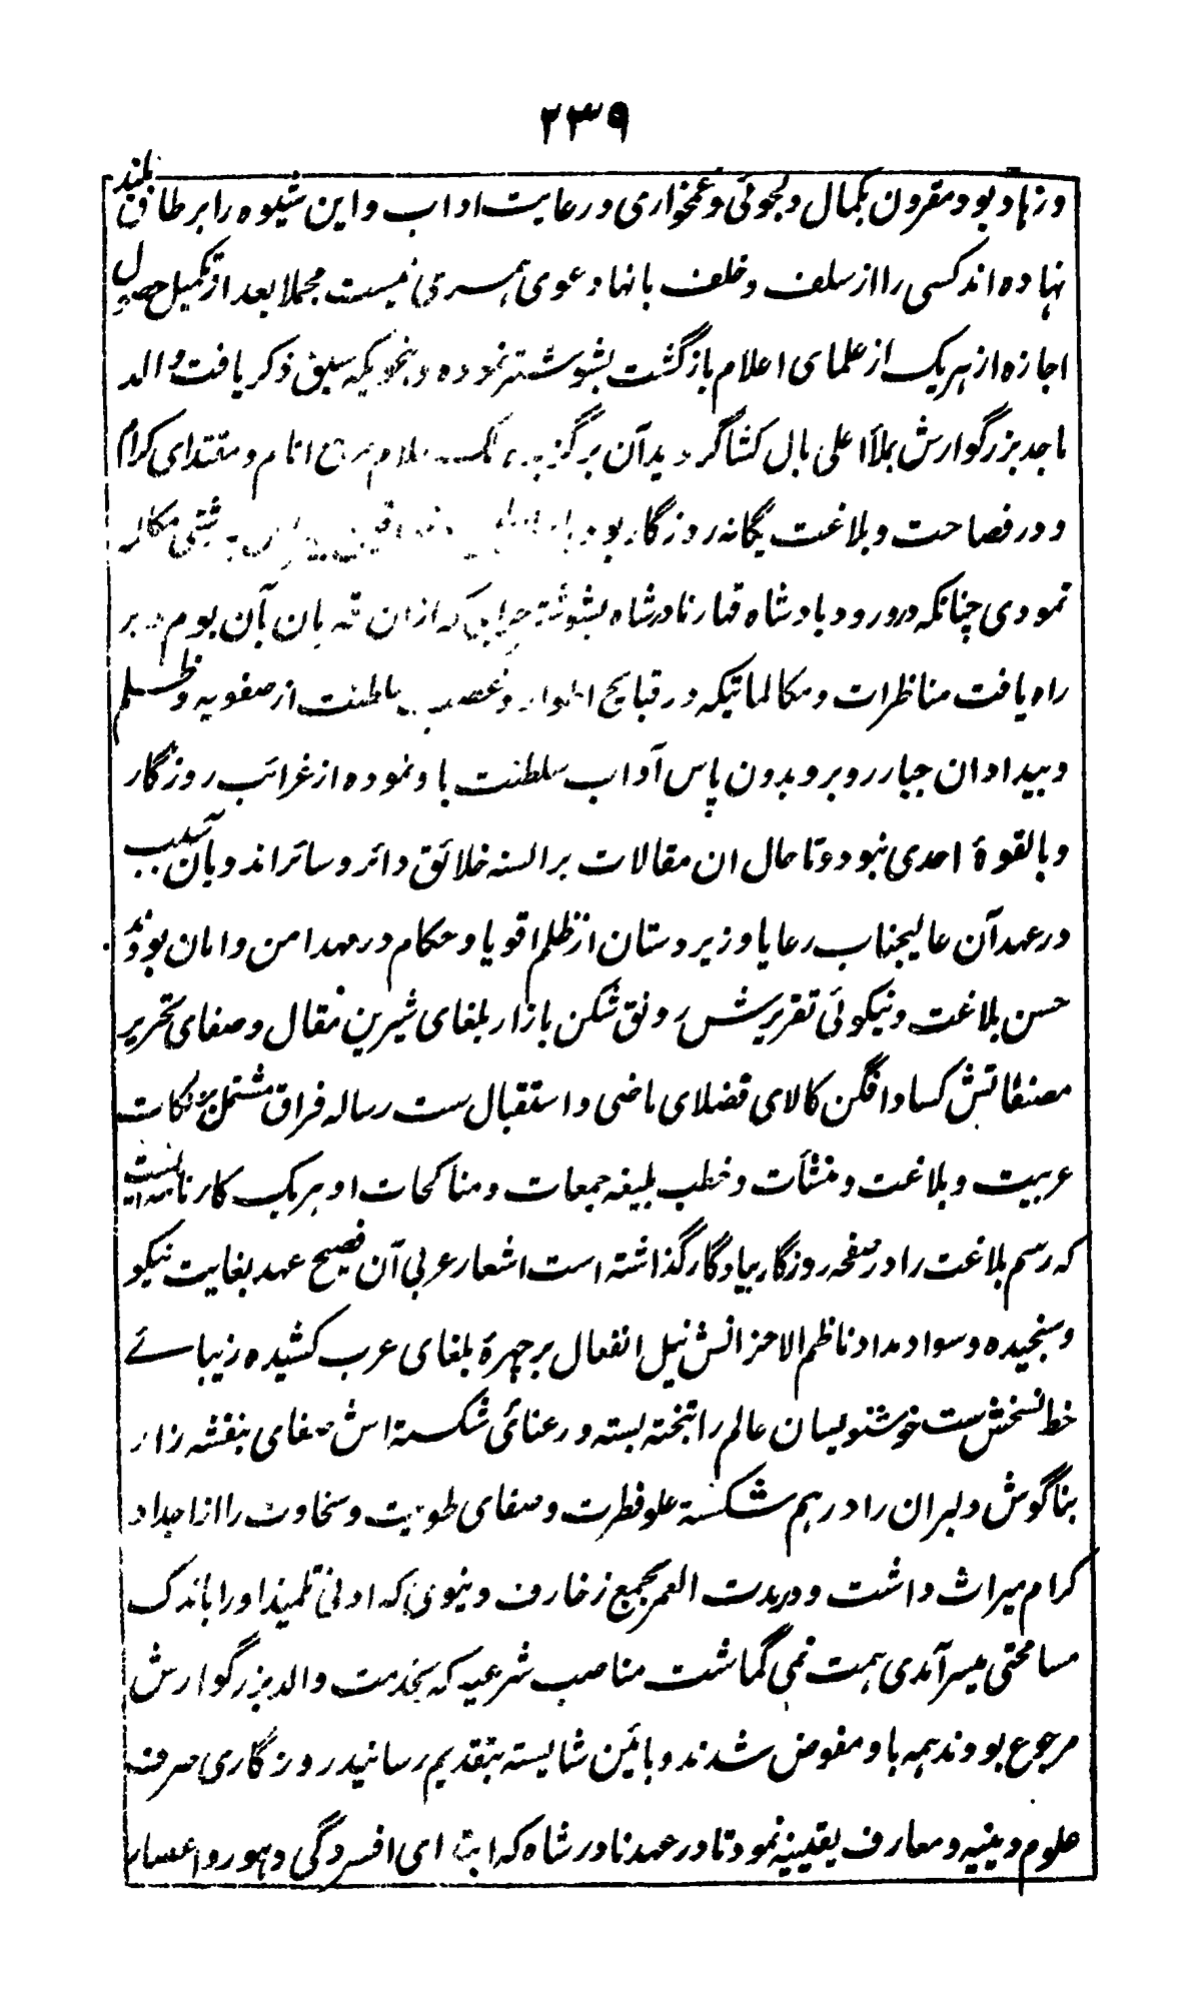 ۲۳۹
و زهاد بود مقرون بکمال دلجوئی و غمخواری و رعایت اداب و این شیوه را بر طاق بلند
نهاده اند کسی را از سلف و خلف بانها دعوی همسری نیست مجملا بعد از تکمیل و حصول
اجازه از هریک از علمای اعلام بازگشت بشوشتر نموده و بنحویکه سبق ذکر یافت والد
ماجد بزرگوارش بملأ اعلی بال کشا گردید آن برگزیده ملک علام مرجع انام و مقتدای کرام
و در فصاحت و بلاغت یگانه روزگار بود مکالمه
نمودی چنانکه در ورود بادشاه قهار نادرشاه بشوشتر که ازان قهرمان بآن بوم و بر
راه یافت مناظرات و مکالماتیکه در قبایح اطوار و غصب سلطنت از صفویه و ظلم
و بیداد ان جبار روبرو بدون پاس آداب سلطنت باو نموده از غرائب روزگار
و بالقوهٔ احدی نبود و تا حال ان مقالات بر السنه خلائق دائر و سائر اند و بآن سبب
در عهد آن عالیجناب رعایا و زیردستان از ظلم اقویا و حکام در مهد امن و امان بودند
حسن بلاغت و نیکوئی تقریرش رونق شکن بازار بلغای شیرین مقال و صفای تحریر
مصنفاتش کساد افگن کالای فضلای ماضی و استقبال ست رساله فراق مشتمل بر نکات
عربیت و بلاغت و منشأت و خطب بلیغه جمعات و مناکحات او هریک کارنامه ایست
که رسم بلاغت را در صفحه روزگار بیادگار گذاشته است اشعار عربی آن فصیح عهد بغایت نیکو
و سنجیده و سواد مداد ناظم الاحزانش نیل انفعال بر چهرهٔ بلغای عرب کشیده زیبائے
خط نسخش دست خوشنویسان عالم را بتخته بسته و رعنائی شکسته اش صفای بنفشه زار
بناگوش دلبران را درهم شکسته علو فطرت و صفای طویت و سخاوت را از اجداد
کرام میراث داشت و در مدت العمر بجمع زخارف دنیوی که ادنی تلمیذ او را باندک
مسامحتی میسر آمدی همت نمی گماشت مناصب شرعیه که بخدمت والد بزرگوارش
مرجوع بودند همه باو مفوض شدند و بائین شایسته بتقدیم رسانید روزگاری صرف
علوم دینیه و معارف یقینیه نمود تا در عهد نادر شاه که ابتدای افسردگی دهور و اعصار